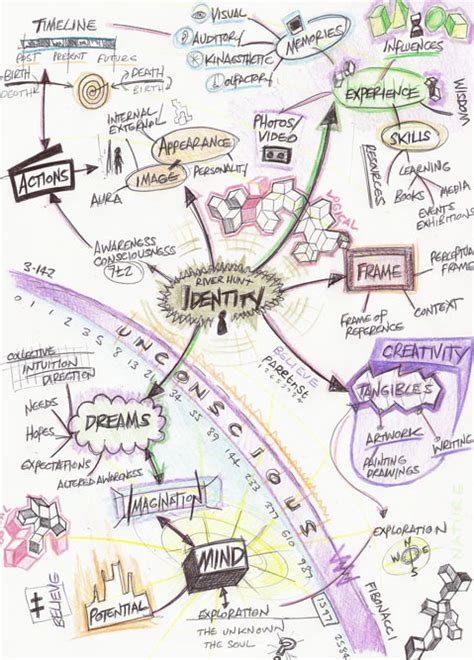 TIMELINE
PAST PRESENT FUTURE
BIRTH
DEATH
DEATH
BIRTH
VISUAL
AUDITORY
KINAESTHETIC
OLFACTORY
MEMORIES
INFLUENCES
EXPERIENCE
WISDOM
SKILLS
RESOURCES
LEARNING
BOOKS
MEDIA
EVENTS
EXHIBITIONS
PHOTOS/
VIDEO
INTERNAL/
EXTERNAL
APPEARANCE
IMAGE
PERSONALITY
AURA
ACTIONS
AWARENESS
CONSCIOUSNESS
7±2
LOGICAL
RIVER HUNT
IDENTITY
FRAME
PERCEPTION
FRAME
CONTEXT
FRAME OF
REFERENCE
3.142
0 1 1 2 3 5 8 13 21 34 55 89 144 233 377 610 987 1597 2584
UNCONSCIOUS
BELIEVE
CREATIVITY
TANGIBLES
ARTWORK
PAINTING
DRAWINGS
WRITING
COLLECTIVE
INTUITION
DIRECTION
NEEDS
HOPES
EXPECTATIONS
DREAMS
ALTERED AWARENESS
IMAGINATION
MIND
POTENTIAL
BELIEVE
EXPLORATION
THE UNKNOWN
THE SOUL
EXPLORATION
N
W E
S
NATURE
FIBONACCI